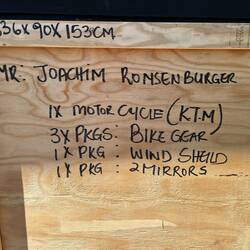 36X90X153CM
MR: JOACHIM RONSENBURGER
1X MOTOR CYCLE (KTM)
3X PKGS: BIKE GEAR
1X PKG: WIND SHEILD
1X PKG: 2 MIRRORS